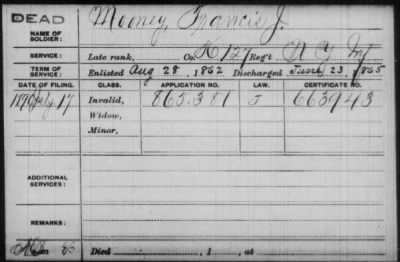 DEAD
NAME OF SOLDIER: Mooney, Francis J.
SERVICE: Late rank, Co. K 127 Reg't N Y Inf
TERM OF SERVICE: Enlisted Aug 28, 1862 Discharged June 23, 1865
DATE OF FILING. CLASS. APPLICATION NO. LAW. CERTIFICATE NO.
1890 July 17 Invalid, 865.381 J 663943
Widow,
Minor,
ADDITIONAL SERVICES:
REMARKS:
Died , 1 , at